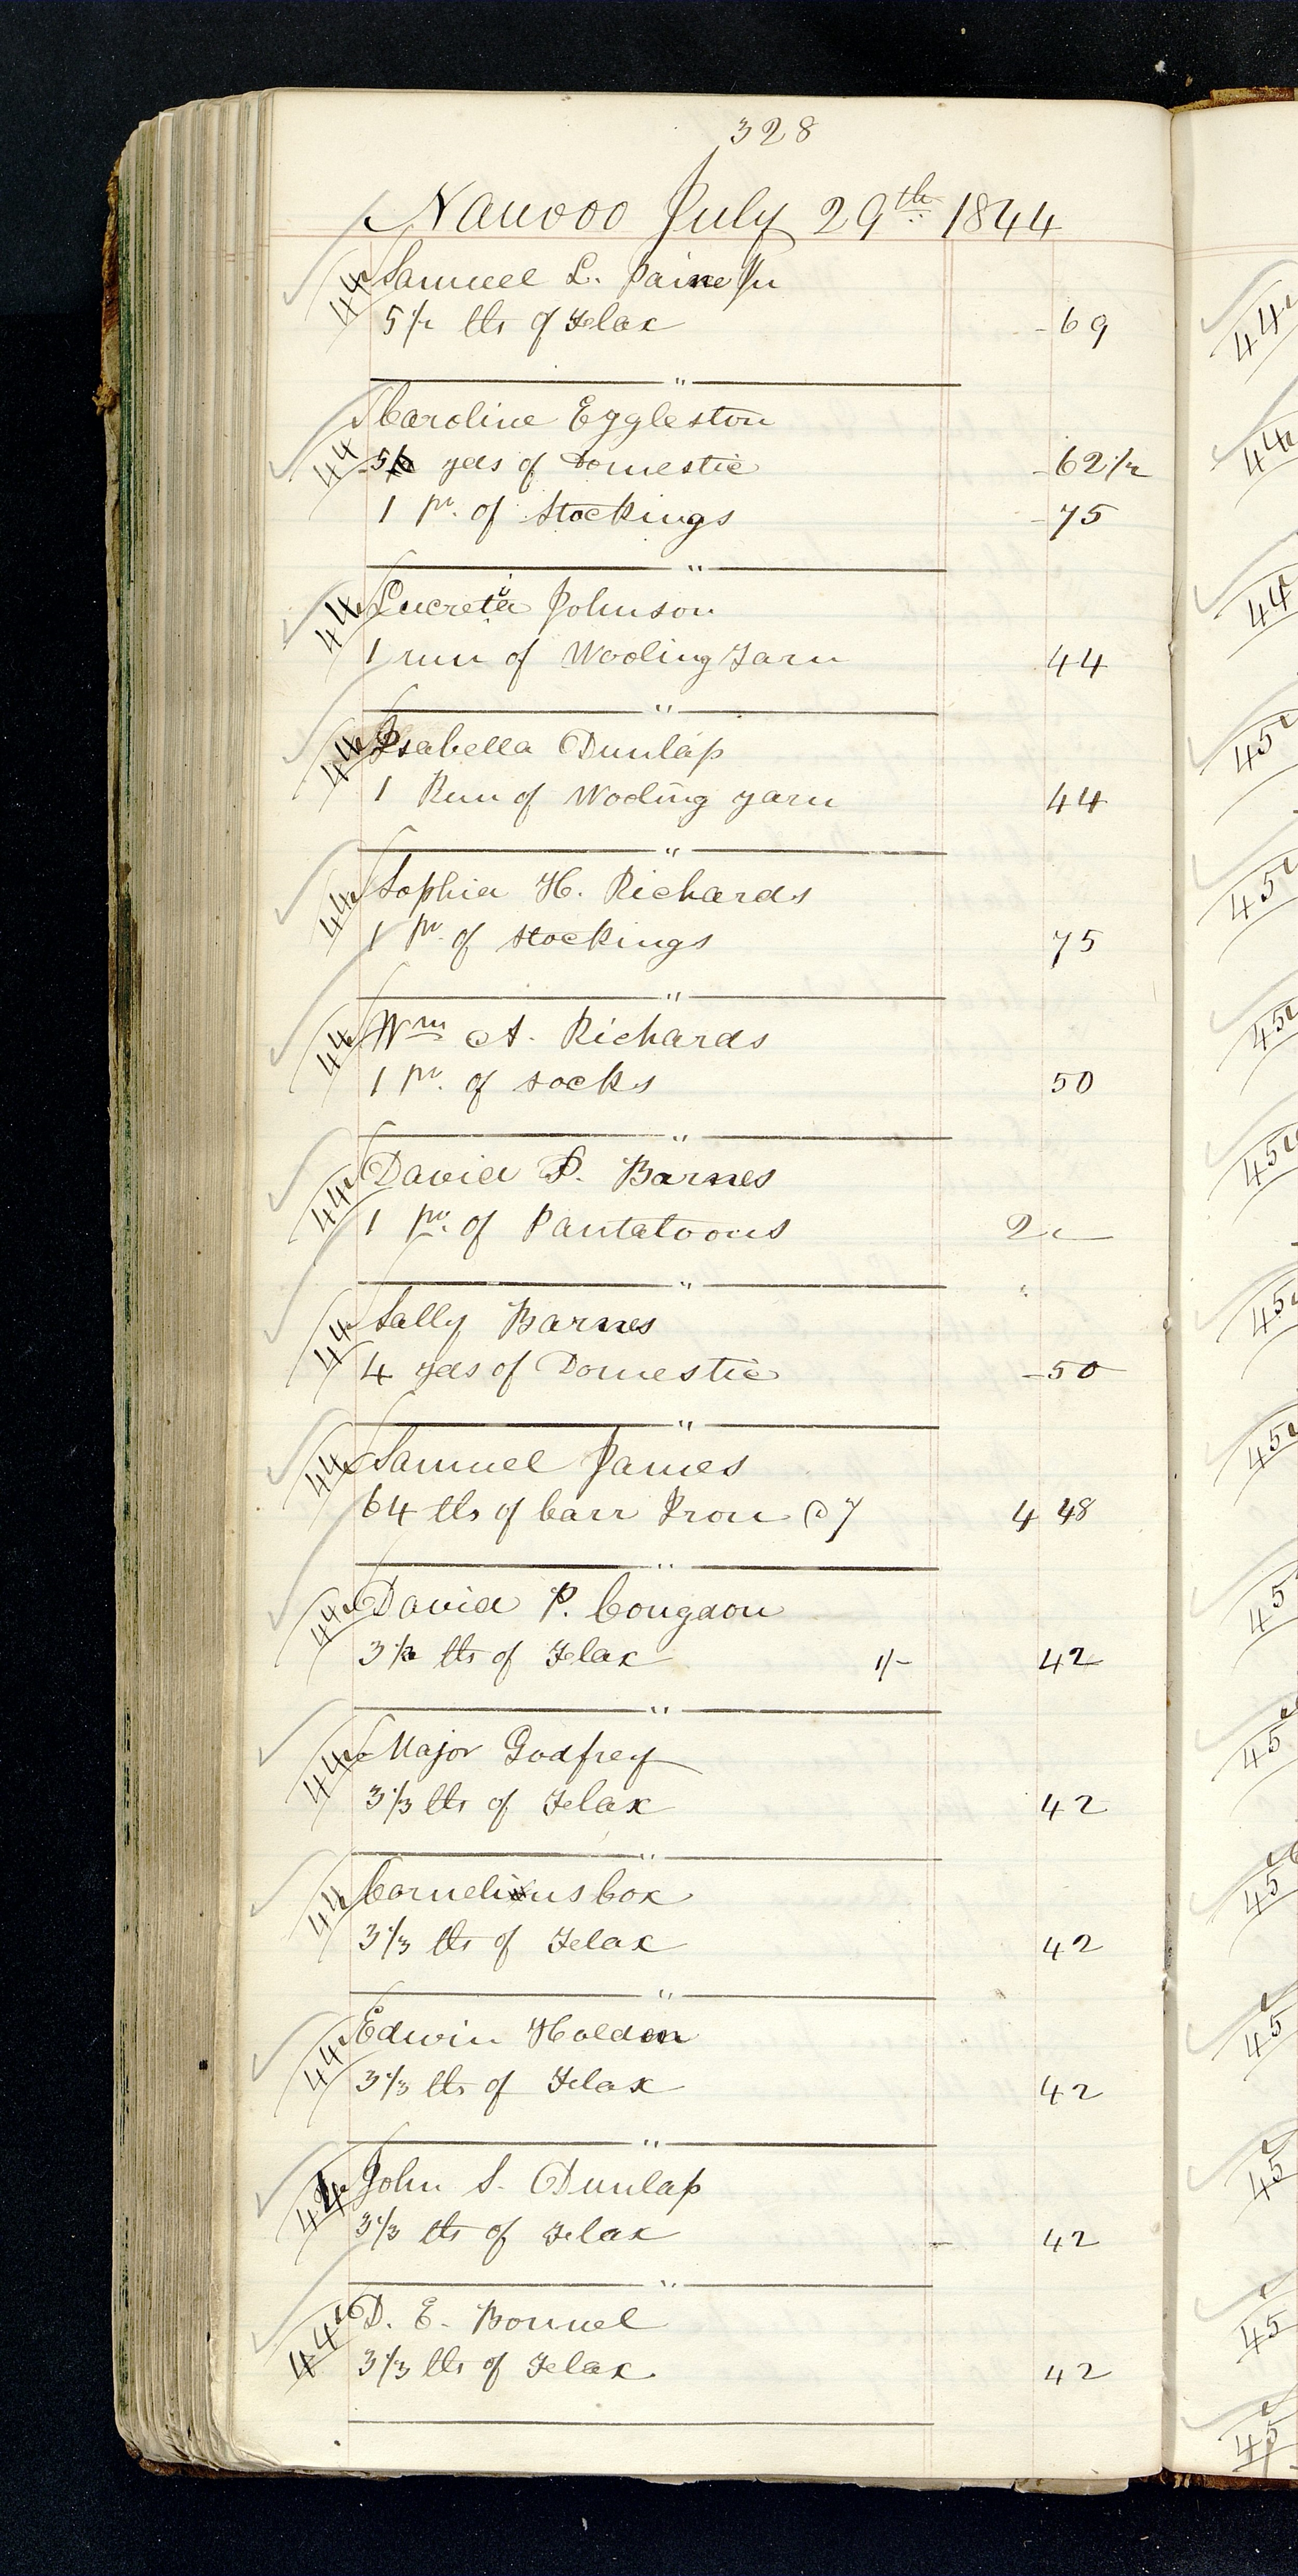 328
Nauvoo July 29th 1844
44 Samuel L. Paine Jr
5 1/2 lbs of Flax - 69
44 Caroline Eggleston
5 yds of Domestic - 62 1/2
1 pr. of Stockings - 75
44 Lucretia Johnson
1 run of Wooling Yarn 44
44 Isabella Dunlap
1 Run of Wooling yarn 44
44 Sophia H. Richards
1 pr. of stockings 75
44 Wm A. Richards
1 pr. of socks 50
44 David P. Barnes
1 pr. of Pantatoons 2 —
44 Sally Barnes
4 yds of Domestic - 50
44 Samuel James
64 lbs of barr Iron @ 7 4 48
44 David P. Congdon
3 1/3 lbs of Flax 1/- 42
44 Major Godfrey
3 1/3 lbs of Flax 42
44 Cornelius Cox
3 1/3 lbs of Flax 42
44 Edwin Holden
3 1/3 lbs of Flax 42
44 John S. Dunlap
3 1/3 lbs of Flax - 42
44 D. E. Bonnel
3 1/3 lbs of Flax 42
44
44
44
45
45
45
45
45
45
45
45
45
45
45
45
45